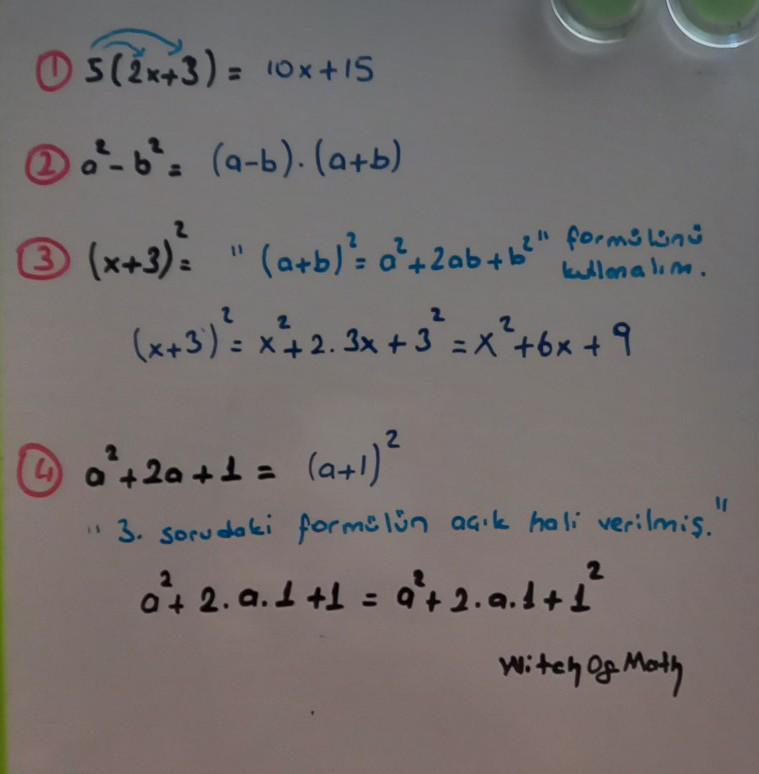 ① 5(2x+3) = 10x+15
② a² - b² = (a-b).(a+b)
③ (x+3)² = " (a+b)² = a² + 2ab + b² " formülünü
kullanalım.
(x+3)² = x² + 2.3x + 3² = x² + 6x + 9
④ a² + 2a + 1 = (a+1)²
" 3. sorudaki formülün açık hali verilmiş. "
a² + 2.a.1 + 1 = a² + 2.a.1 + 1²
Witch Of Math